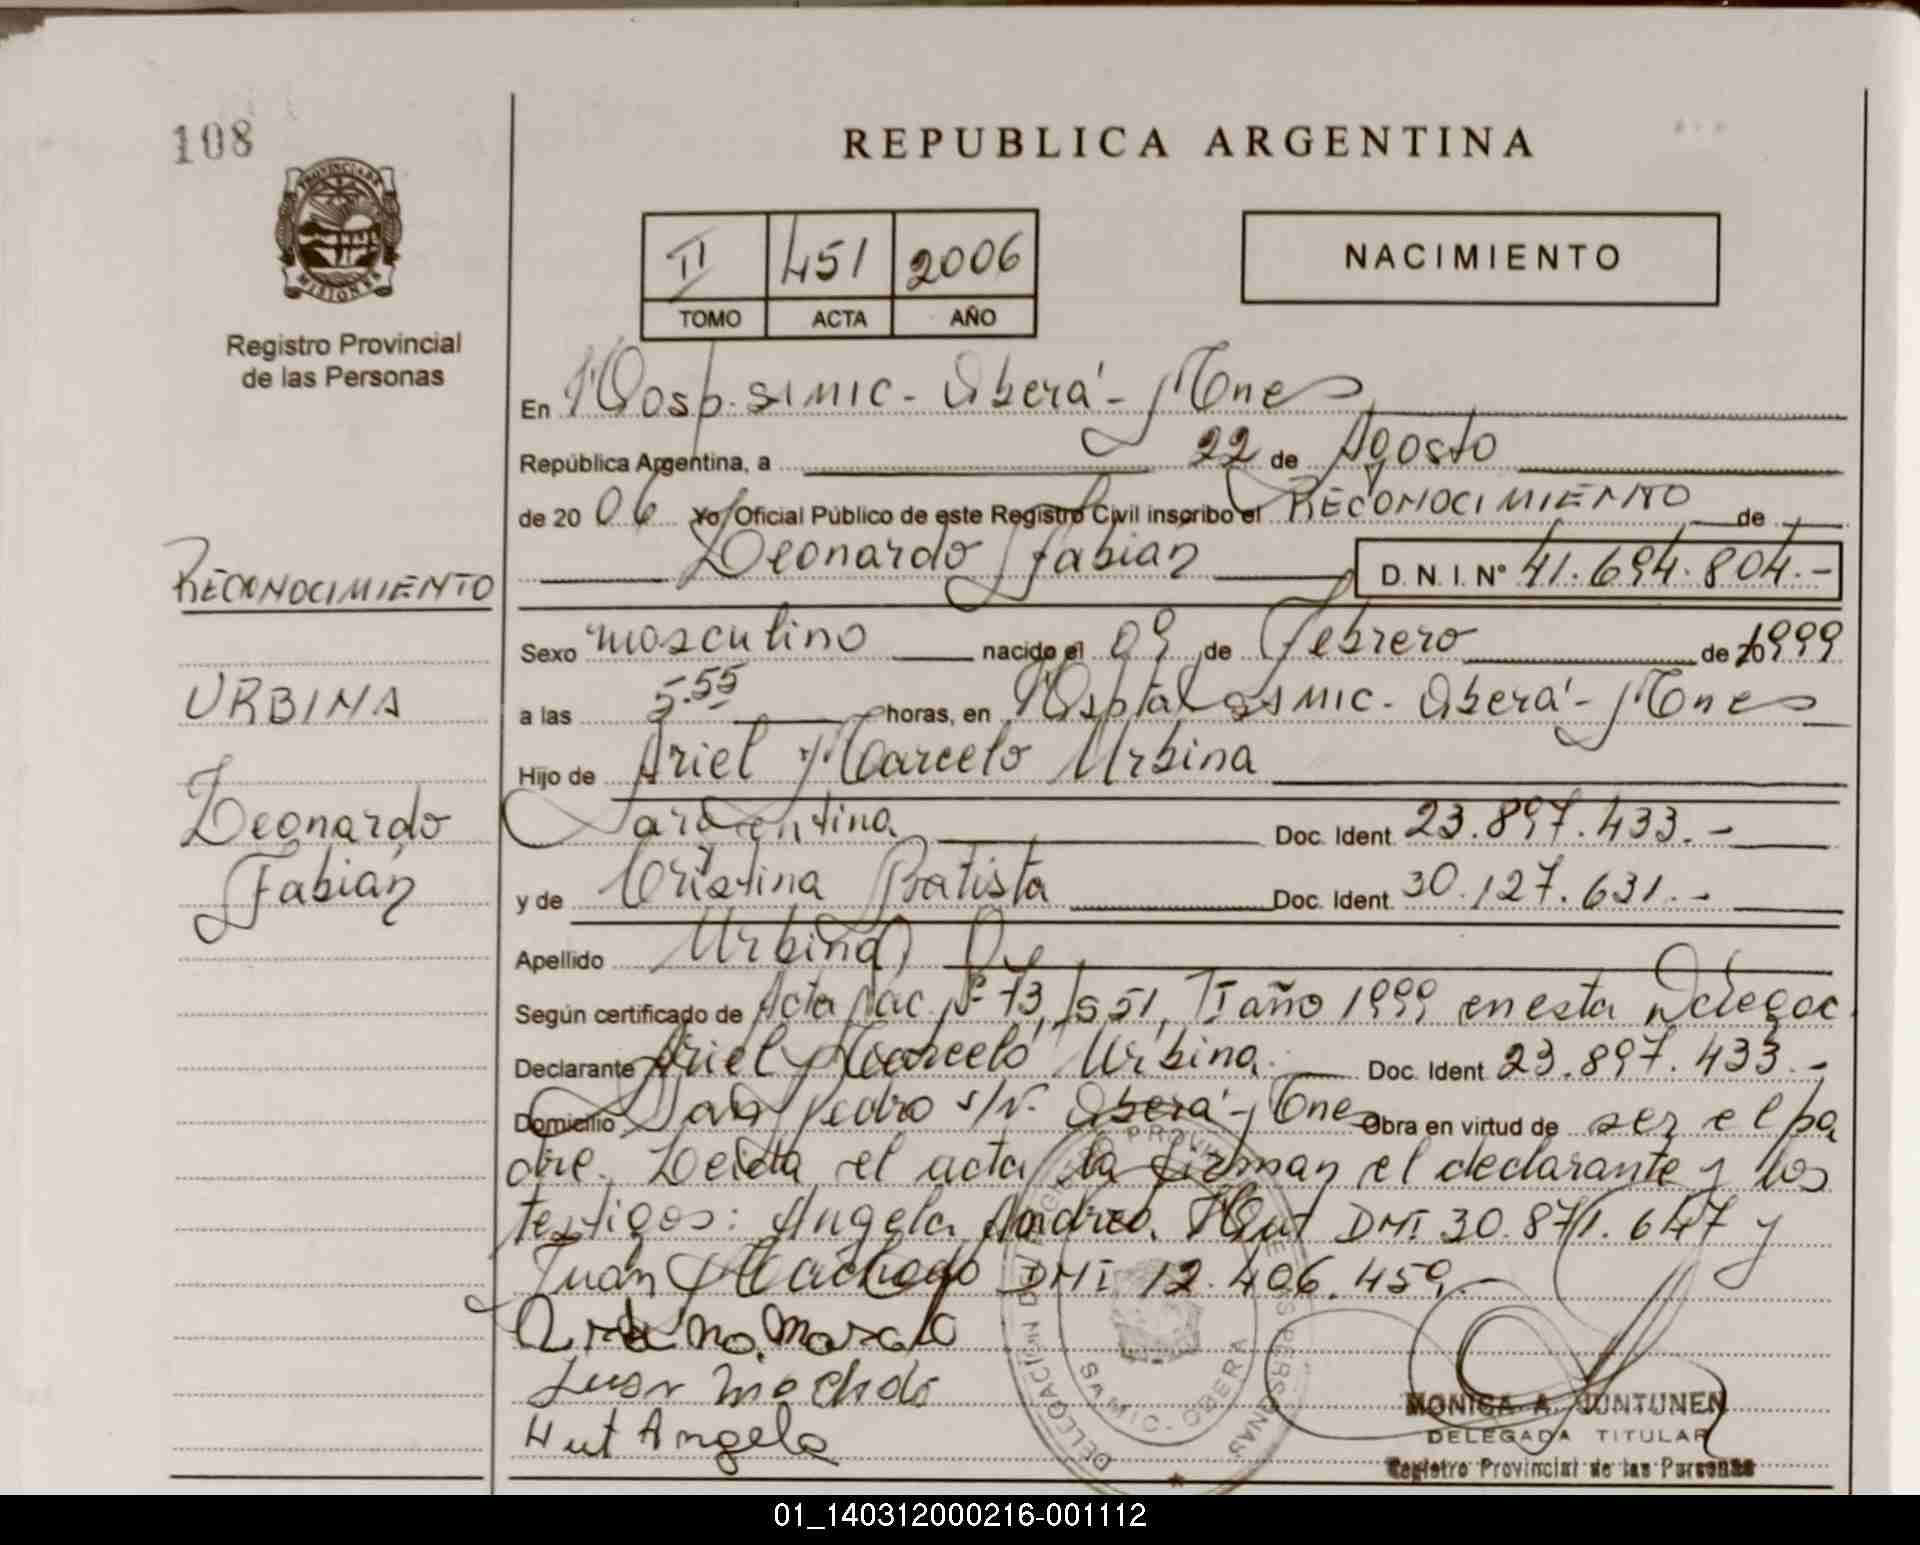 108
REPUBLICA ARGENTINA
PROVINCIA DE
MISIONES
Registro Provincial
de las Personas
II 451 2006
TOMO ACTA AÑO
NACIMIENTO
En Hosp. SAMIC - Oberá - Mnes
República Argentina, a 22 de Agosto
de 2006 Yo, Oficial Público de este Registro Civil inscribo el RECONOCIMIENTO de
Leonardo Fabián D.N.I. Nº 41.694.804.-
Sexo masculino nacido el 09 de Febrero de 1999
a las 5.55 horas, en Hospital SAMIC - Oberá - Mnes
Hijo de Ariel Marcelo Urbina
argentina Doc. Ident. 23.897.433.-
y de Cristina Batista Doc. Ident. 30.127.631.-
Apellido Urbina
Según certificado de Acta Nac. Nº 73, Fs 51, TI año 1999 en esta Delegac.
Declarante Ariel Marcelo Urbina Doc. Ident. 23.897.433.-
Domicilio San Pedro s/N. Oberá - Mnes Obra en virtud de ser el pa
dre. Leida el acta la firman el declarante y los
testigos: Angela Andrea Hut DNI 30.871.647 y
Juan Machado DNI 12.406.459.-
Juan Machado
Hut Angela
RECONOCIMIENTO
URBINA
Leonardo
Fabián
DELEGACION
SAMIC - OBERA
MONICA A. JUNTUNEN
DELEGADA TITULAR
Registro Provincial de las Personas
01_140312000216-001112